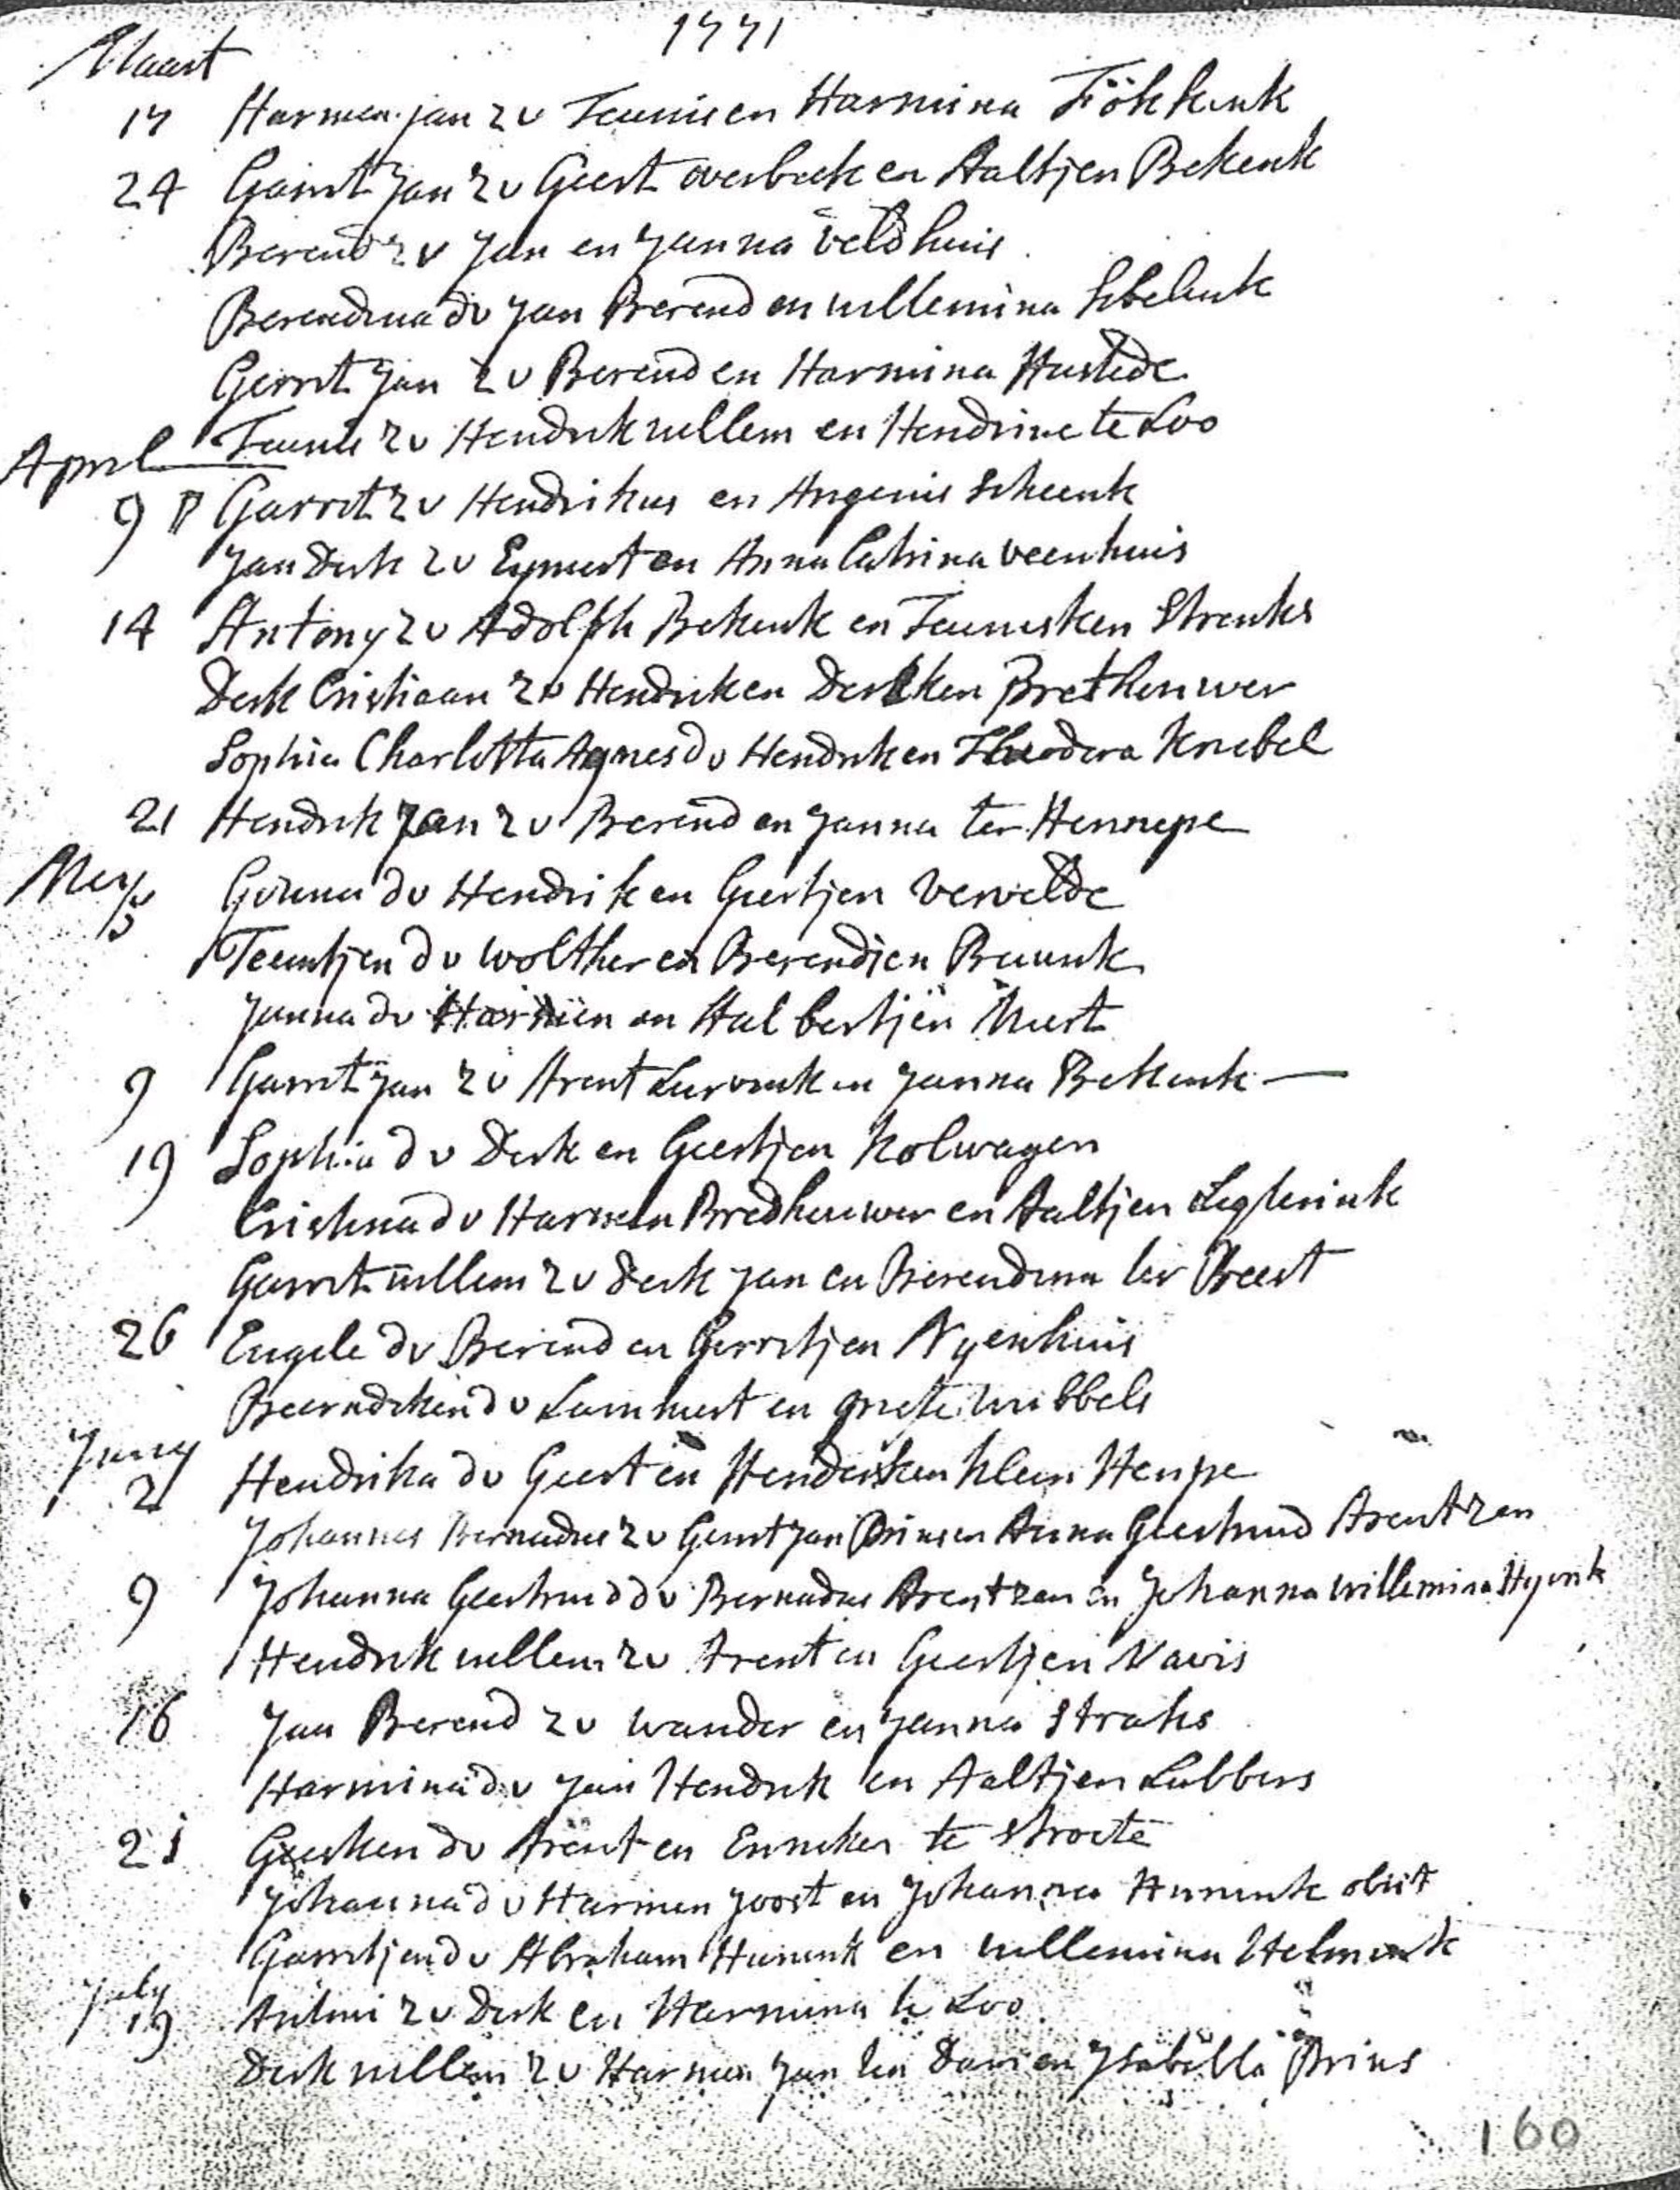 1771
Maart
17 Harmen jan zv Teunis en Harmina Fökkink
24 Garrit Jan zv Geert overbeek en Aaltjen Bekenk
Berend zv Jan en Janna veldhuis
Berendina dv Jan Berend en willemina
Gerrit Jan zv Berend en Harmina Hustede
Teunis zv Hendrik willem en Hendrine te Loo
April
9 Garrit zv Hendrikus en Angenis Scheenk
Jan Derk zv Eymert en Anna Catrina veenhuis
14 Antony zv Adolph Bekenk en Teunisken Strenks
Derk Cristiaan zv Hendrik en Derkken Brethouwer
Sophia Charlotta Agnes dv Hendrik en Theodora Knebel
21 Hendrik Jan zv Berend en Janna ter Hennepe
Mey
5 dv Hendrik en Geertjen vervelde
Teuntjen dv wolther en Berendien Bruunk
Janna dv Harmen en Halbertjen
9 Garrit Jan zv Arent en Janna Bekenk
19 Sophia dv Derk en Geertjen Kolwagen
Cristina dv Harmen Bredhouwer en Aaltjen Legterink
Garrit willem zv Derk Jan en Berendina ter Beest
26 Engele dv Berend en Gerritjen Nyenhuis
Beerndeken dv Lammert en griete wibbels
Juny
2 Hendrika dv Geert en Hendersken klein Henpe
Johannes Bernardus zv Gerrit Jan Prins en Anna Geertruid Arentzen
9 Johanna Geertruid dv Bernadus Arentzen en Johanna willemina Hyink
Hendrik willem zv Arent en Geertjen Navis
16 Jan Berend zv wander en Janna Straks
Harmina dv Jan Hendrik en Aaltjen Lubbers
21 Geesken dv Arent en Enneken te stroete
Johanna dv Harmen Joost en Johanna Hunink obiit
Garritjen dv Abraham Hunink en willemina Helmink
July
19 Antoni zv Derk en Harmina te Loo
Derk willem zv Harmen Jan ten Dam en Ysabella Prins
160